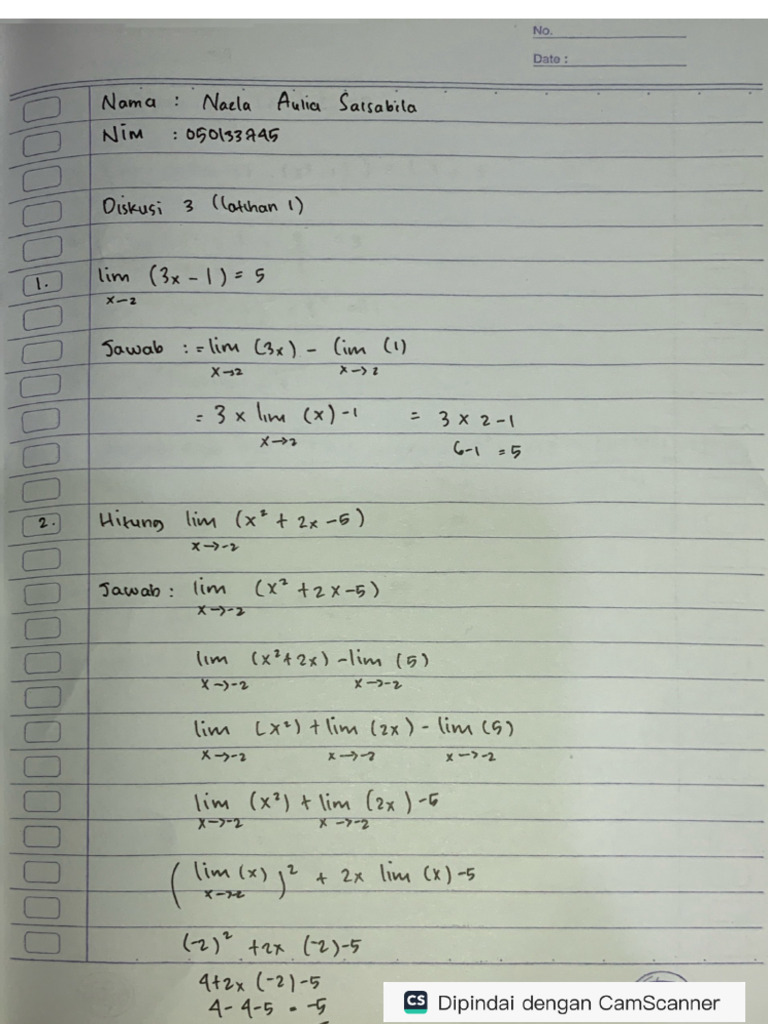 No.
Date :
Nama : Naela Aulia Salsabila
Nim : 050133745
Diskusi 3 (latihan 1)
1. lim (3x - 1) = 5
x→2
Jawab : = lim (3x) - lim (1)
x→2 x→2
= 3 x lim (x) - 1 = 3 x 2 - 1
x→2
6-1 = 5
2. Hitung lim (x² + 2x - 5)
x→-2
Jawab : lim (x² + 2x - 5)
x→-2
lim (x² + 2x) - lim (5)
x→-2 x→-2
lim (x²) + lim (2x) - lim (5)
x→-2 x→-2 x→-2
lim (x²) + lim (2x) - 5
x→-2 x→-2
( lim (x) )² + 2x lim (x) - 5
x→-2
(-2)² + 2x (-2) - 5
4 + 2x (-2) - 5
4 - 4 - 5 = -5
CS Dipindai dengan CamScanner